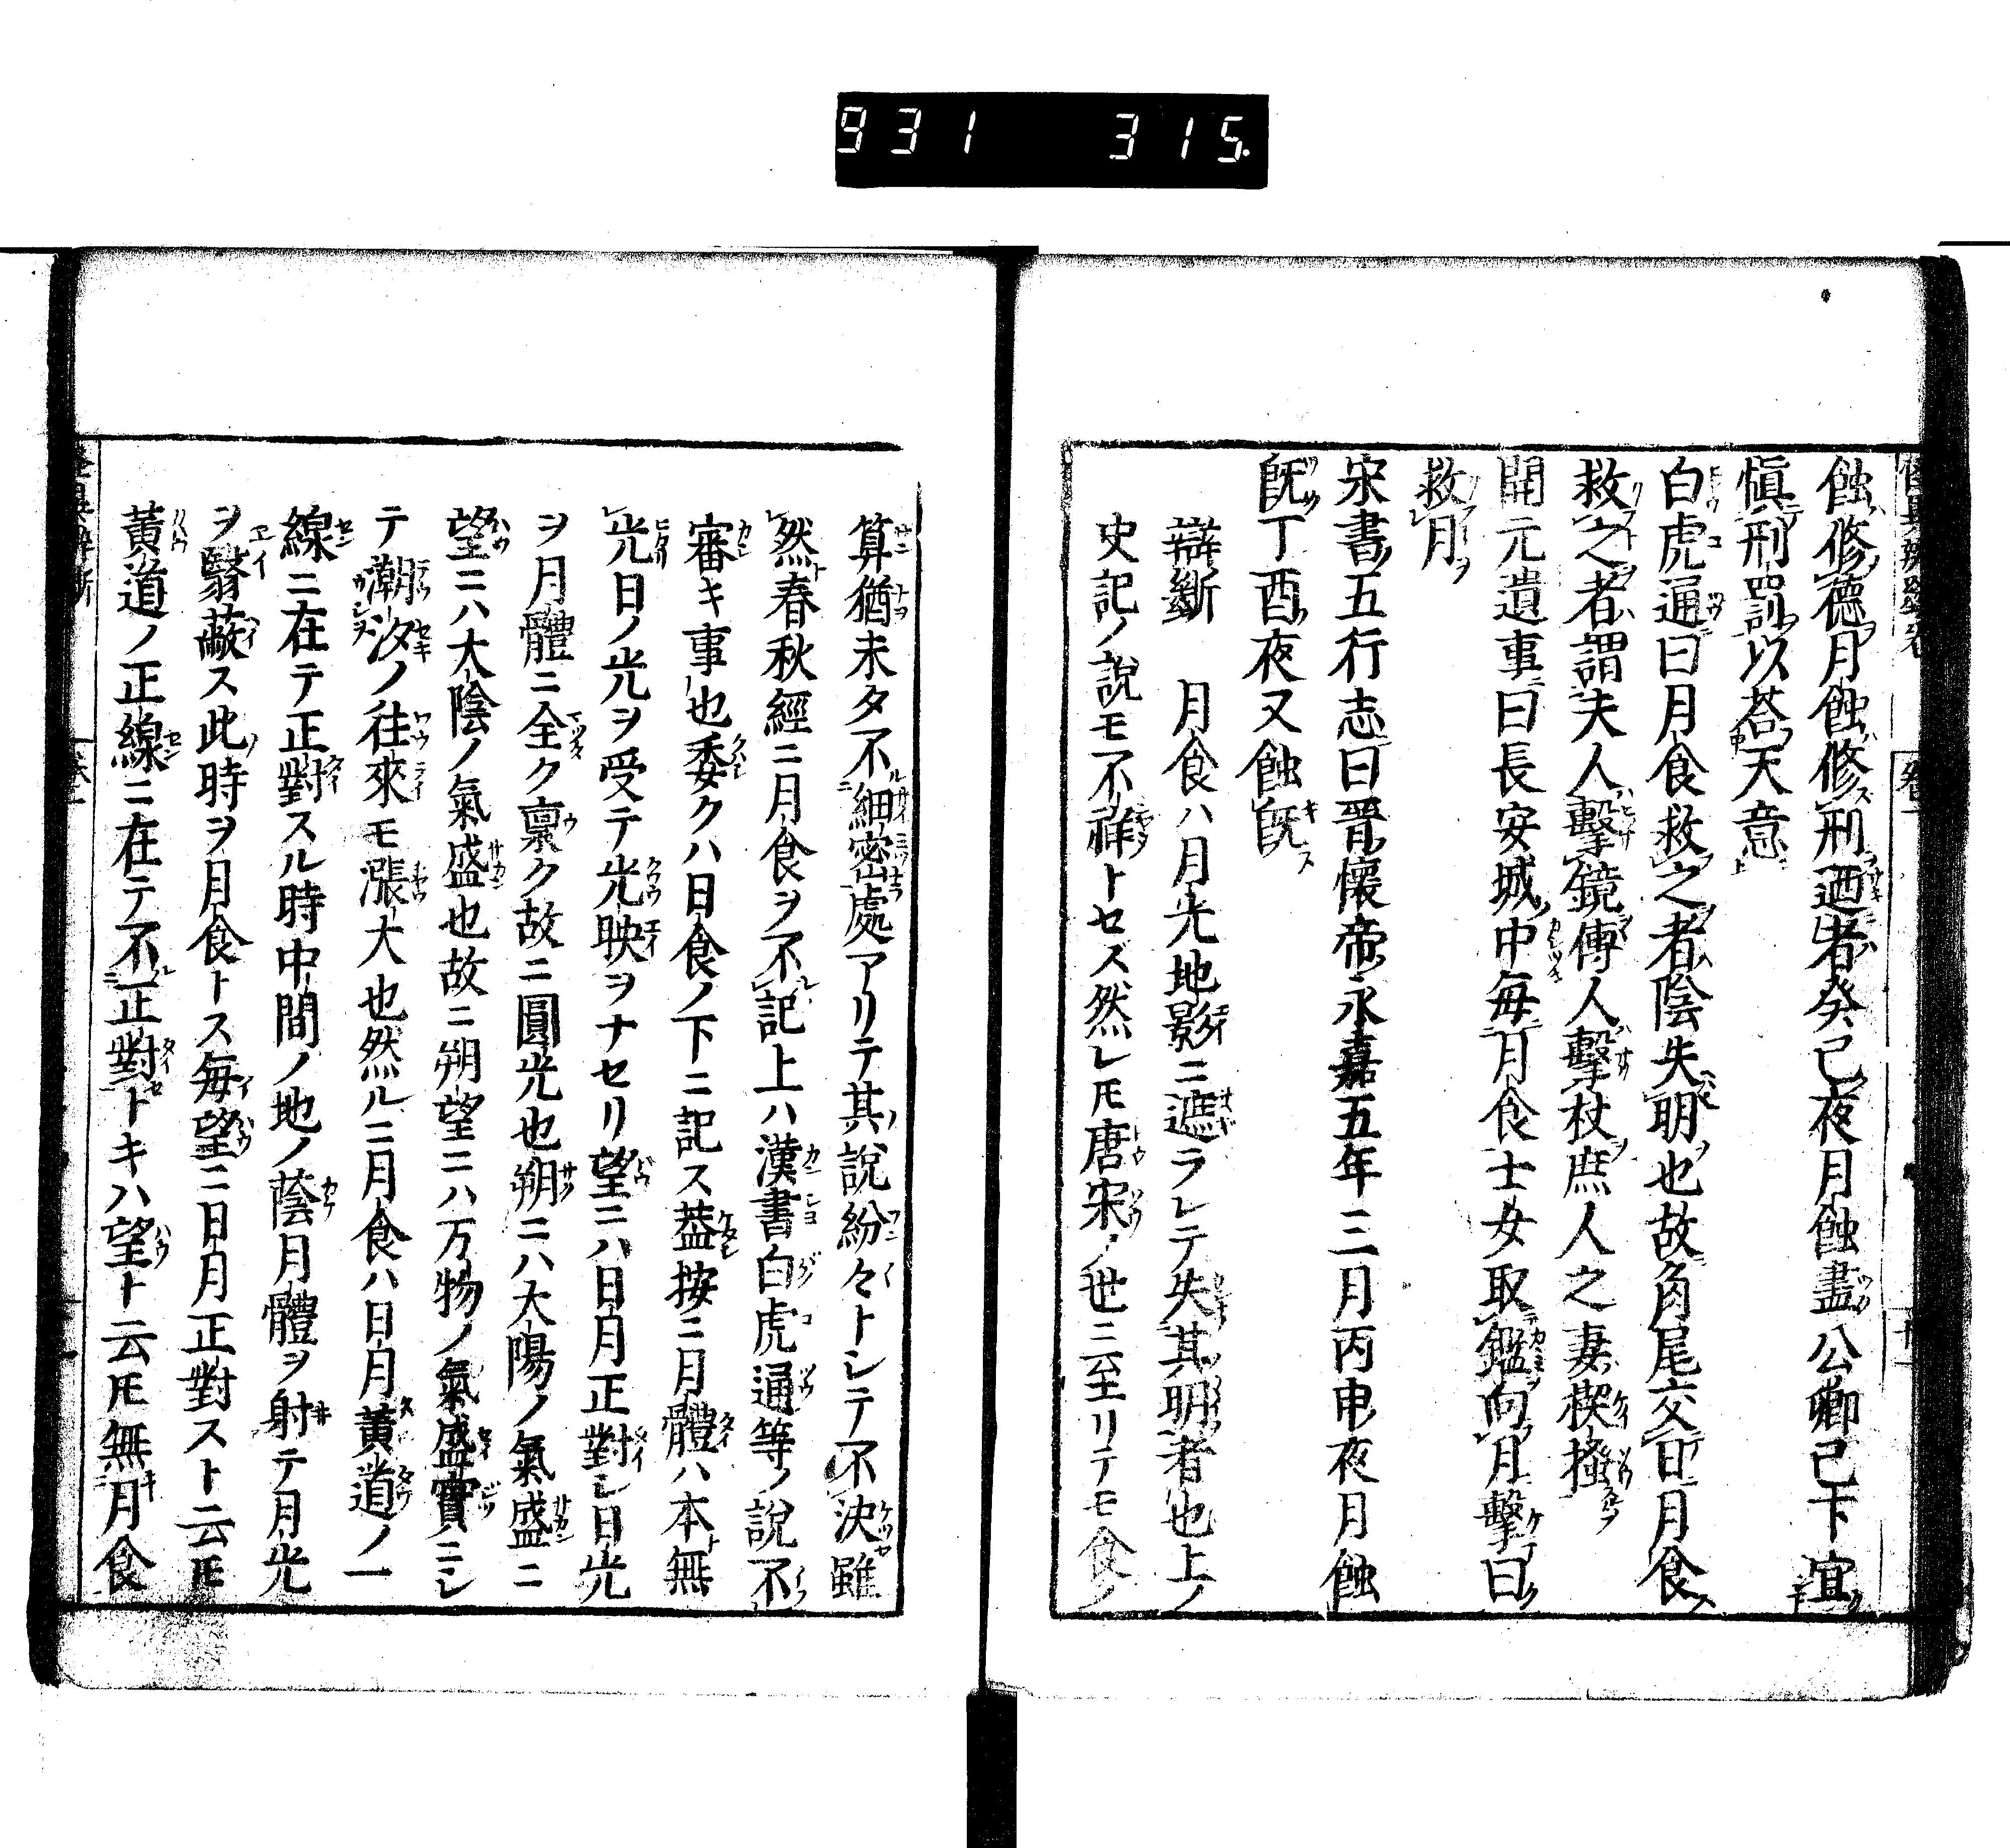 931 315.
蝕修德月蝕修刑迺者癸已夜月蝕盡公卿已下宜
愼刑罰以荅天意
白虎通曰月食救之者陰失明也故角尾交日月食
救之者謂夫人擊鏡傅人擊杖庶人之妻楔搔
開元遺事曰長安城中每月食士女取鑑向月擊曰
救月
宋書五行志曰晋懷帝永嘉五年三月丙申夜月蝕
旣丁酉夜又蝕旣
辯斷 月食ハ月光地影ニ遮ラレテ失其明者也上ノ
史記ノ說モ不祥トセズ然レ𪜈唐宋ノ世ニ至リテモ食ノ
算猶未タ不細密處アリテ其說紛々トシテ不決雖
然春秋經ニ月食ヲ不記上ハ漢書白虎通等ノ說不
審キ事也委クハ日食ノ下ニ記ス葢按ニ月體ハ本無
光日ノ光ヲ受テ光映ヲナセリ望ニハ日月正對シ日光
ヲ月體ニ全ク稟ク故ニ圓光也朔ニハ大陽ノ氣盛ニ
望ニハ大陰ノ氣盛也故ニ朔望ニハ万物ノ氣盛實ニシ
テ潮汐ノ往來モ漲大也然ルニ月食ハ日月黃道ノ一
線ニ在テ正對スル時中間ノ地ノ蔭月體ヲ射テ月光
ヲ翳蔽ス此時ヲ月食トス每望ニ日月正對スト云𪜈
黃道ノ正線ニ在テ不正對トキハ望ト云𪜈無月食